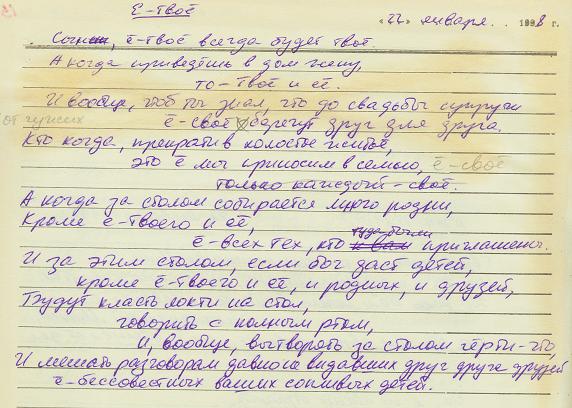 Ё-твоё
"22" января 1998 г.
Сынок, ё-твоё всегда будет твоё.
А когда приведёшь в дом жену,
то-твоё и её.
И вообще, чтоб ты знал, что до свадьбы супруги
от чужих ё-своё берегут друг для друга.
Кто когда, прекратив холостое житьё,
это ё мы приносим в семью, ё-своё
только каждый-своё.
А когда за столом собирается много родни,
Кроме ё-твоего и её,
ё-всех тех, кто туда были приглашены.
И за этим столом, если бог даст детей,
кроме ё-твоего и её, и родных, и друзей,
Будут класть локти на стол,
говорить с полным ртом,
и, вообще, вытворять за столом чёрти-что,
И мешать разговорам давно не видавших друг друга друзей
ё-бессовестных ваших сопливых детей.